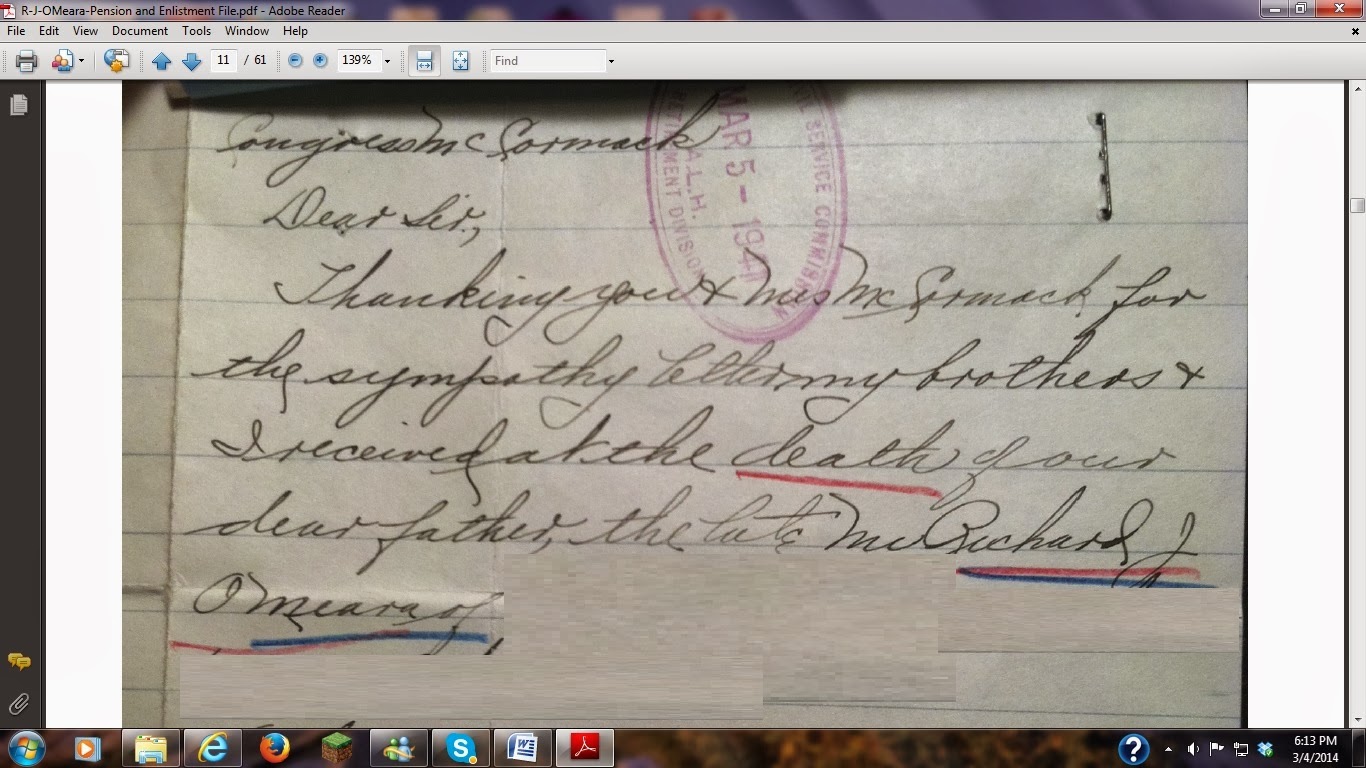 R-J-OMeara-Pension and Enlistment File.pdf - Adobe Reader
File Edit View Document Tools Window Help
11 / 61 139% Find
CIVIL SERVICE COMMISSION
MAR 5 - 1941
A.L.H.
RETIREMENT DIVISION
Congress McCormack
Dear Sir.,
Thanking you & Mrs McCormack for
the sympathy letter my brothers &
I received at the death of our
dear father, the late Mr Richard J
O'Meara of
6:13 PM
3/4/2014